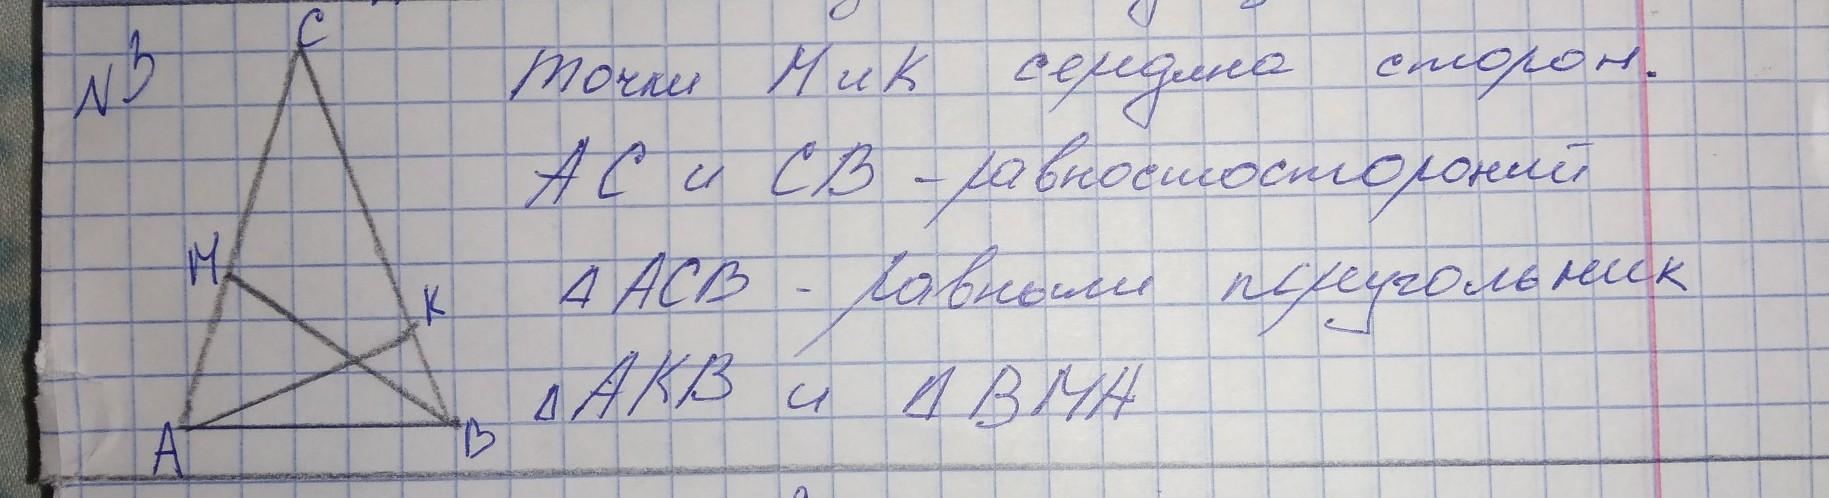 №3
C
M
K
A
B
точки М и К середина сторон.
АС и СВ - равностосторонний
Δ АСВ - равными треугольник
Δ АКВ и Δ ВМА